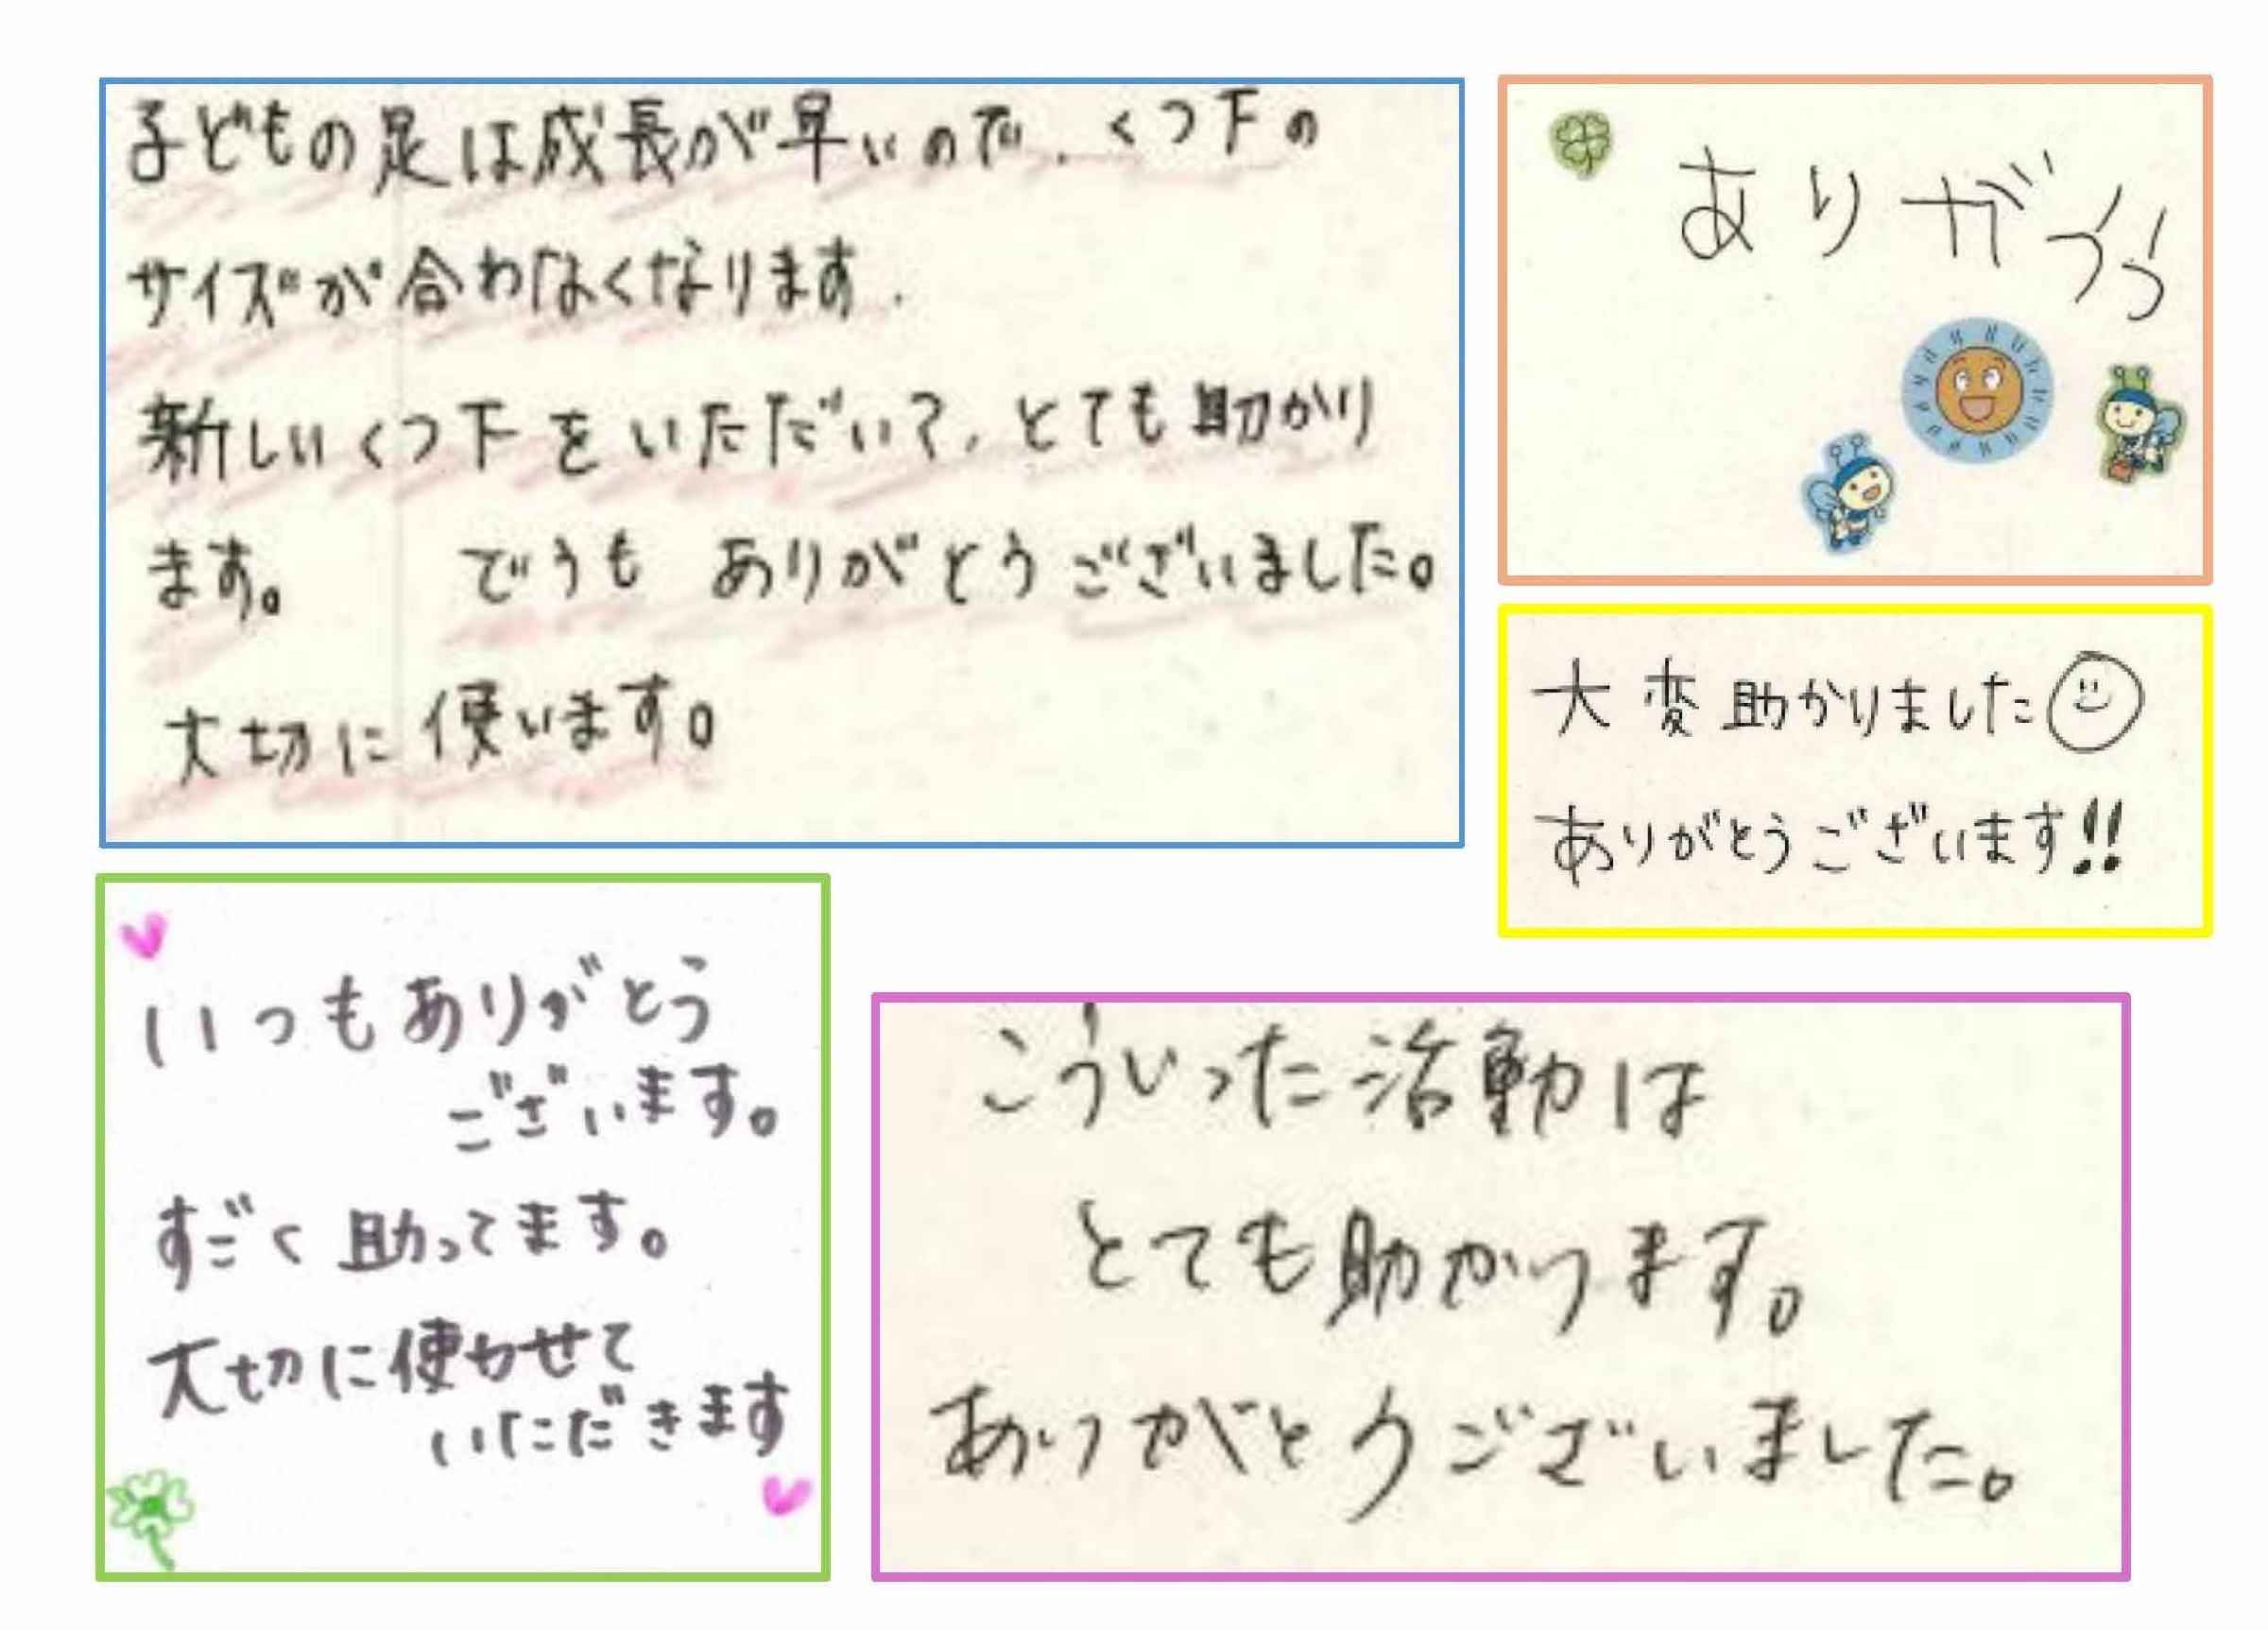 子どもの足は成長が早いので、くつ下の
サイズが合わなくなります.
新しいくつ下をいただいて、とても助かり
ます。 どうも ありがとうございました。
大切に使います。
ありがとう
大変助かりました
ありがとうございます!!
いつもありがとう
ございます。
すごく助ってます。
大切に使わせて
いただきます
こういった活動は
とても助かります。
ありがとうございました。